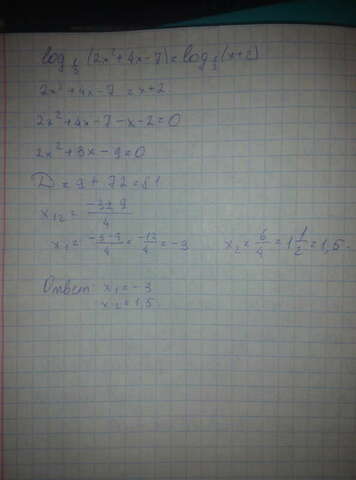 log_{1/3} (2x²+4x-7) = log_{1/3} (x+2)
2x²+4x-7 = x+2
2x²+4x-7-x-2=0
2x²+3x-9=0
D = 9+72=81
x₁₂ = \frac{-3±9}{4}
x₁ = \frac{-3-9}{4} = \frac{-12}{4} = -3 x₂ = \frac{6}{4} = 1\frac{1}{2} = 1,5.
Ответ x₁ = -3
x₂ = 1,5